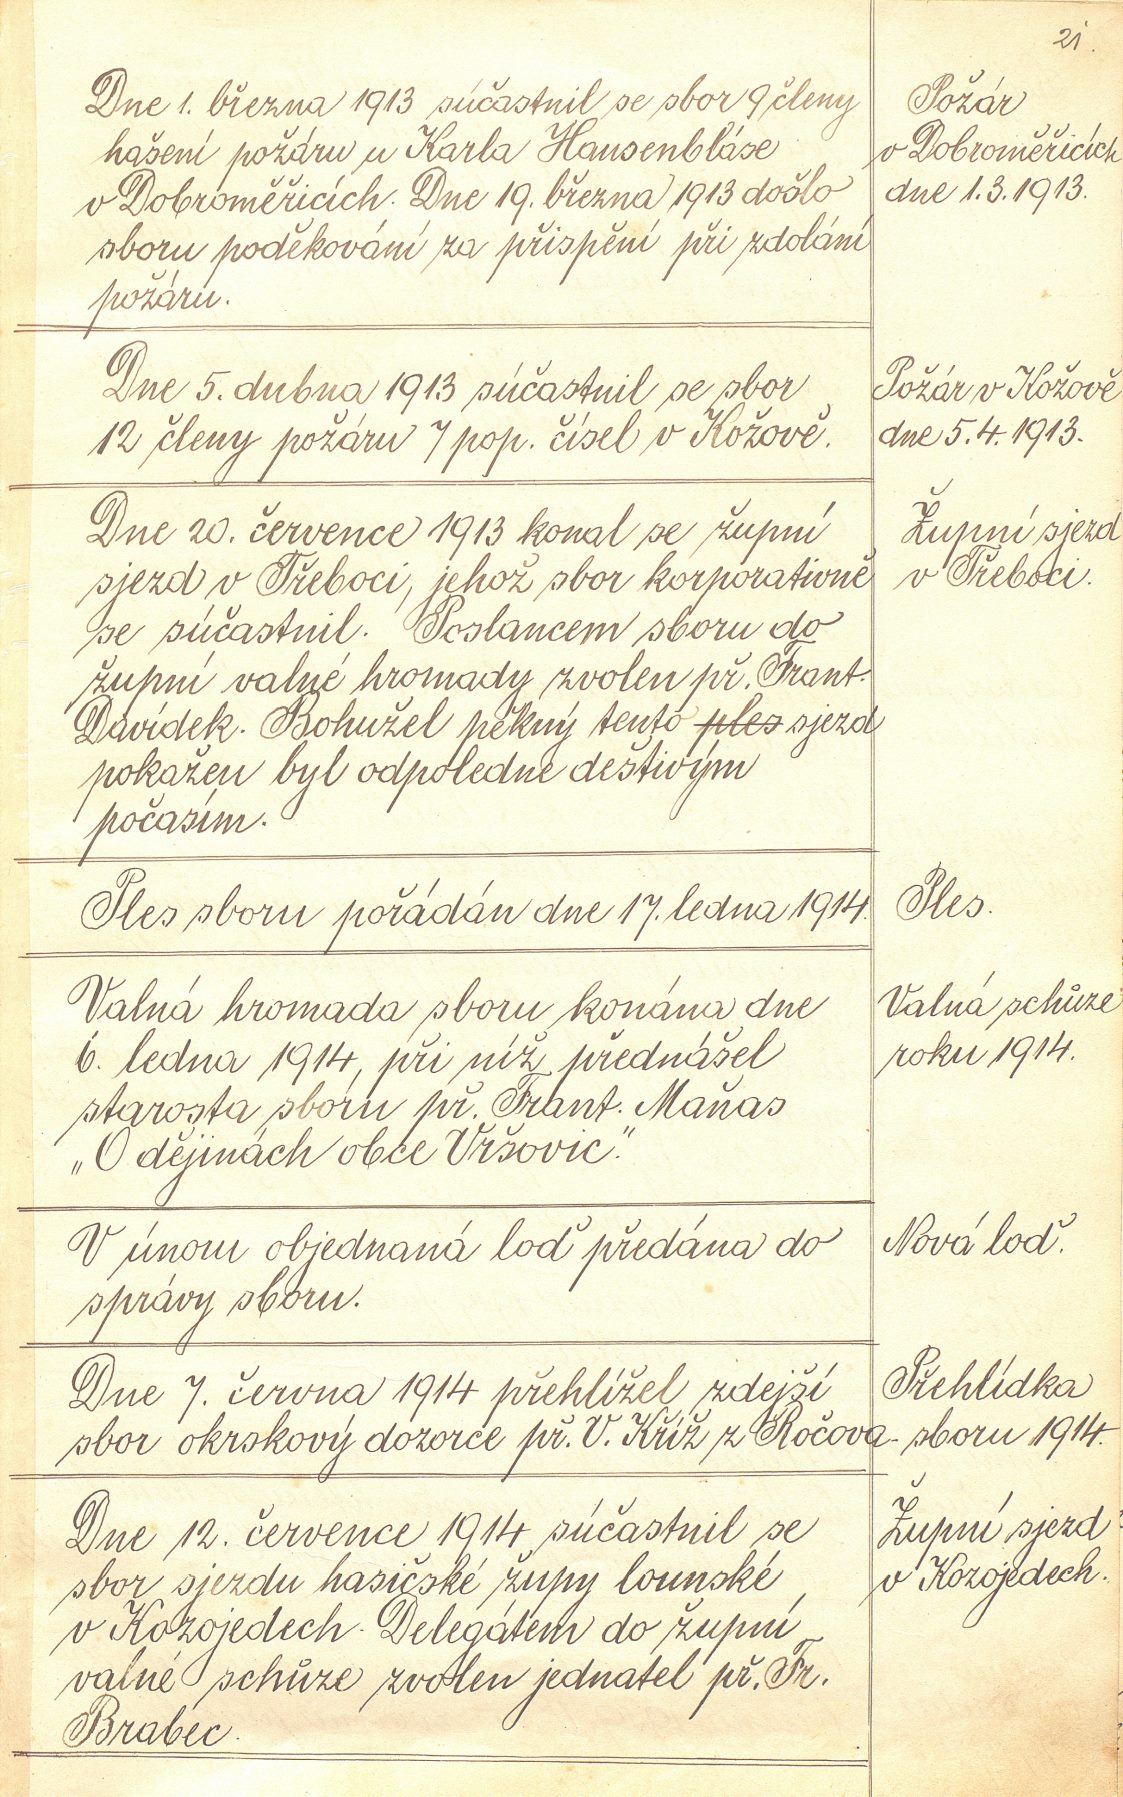 21.
Dne 1. března 1913 súčastnil se sbor 9 členy
hašení požáru u Karla Hausenbláse
v Dobroměřicích. Dne 19. března 1913 došlo
sboru poděkování za přispění při zdolání
požáru.
Požár
v Dobroměřicích
dne 1.3.1913.
Dne 5. dubna 1913 súčastnil se sbor
12 členy požáru 7 pop. čísel v Kožově.
Požár v Kožově
dne 5.4.1913.
Dne 20. července 1913 konal se župní
sjezd v Třeboci, jehož sbor korporativně
se súčastnil. Poslancem sboru do
župní valné hromady zvolen př. Frant.
Davídek. Bohužel pěkný tento ples sjezd
pokažen byl odpoledne deštivým
počasím.
Župní sjezd
v Třeboci.
Ples sboru pořádán dne 17. ledna 1914.
Ples.
Valná hromada sboru konána dne
6. ledna 1914, při níž přednášel
starosta sboru př. Frant. Maňas
„O dějinách obce Vršovic".
Valná schůze
roku 1914.
V únoru objednaná loď předána do
správy sboru.
Nová loď.
Dne 7. června 1914 přehlížel zdejší
sbor okrskový dozorce př. V. Kříž z Ročova.
Přehlídka
sboru 1914.
Dne 12. července 1914 súčastnil se
sbor sjezdu hasičské župy lounské
v Kozojedech. Delegátem do župní
valné schůze zvolen jednatel př. Fr.
Brabec.
Župní sjezd
v Kozojedech.